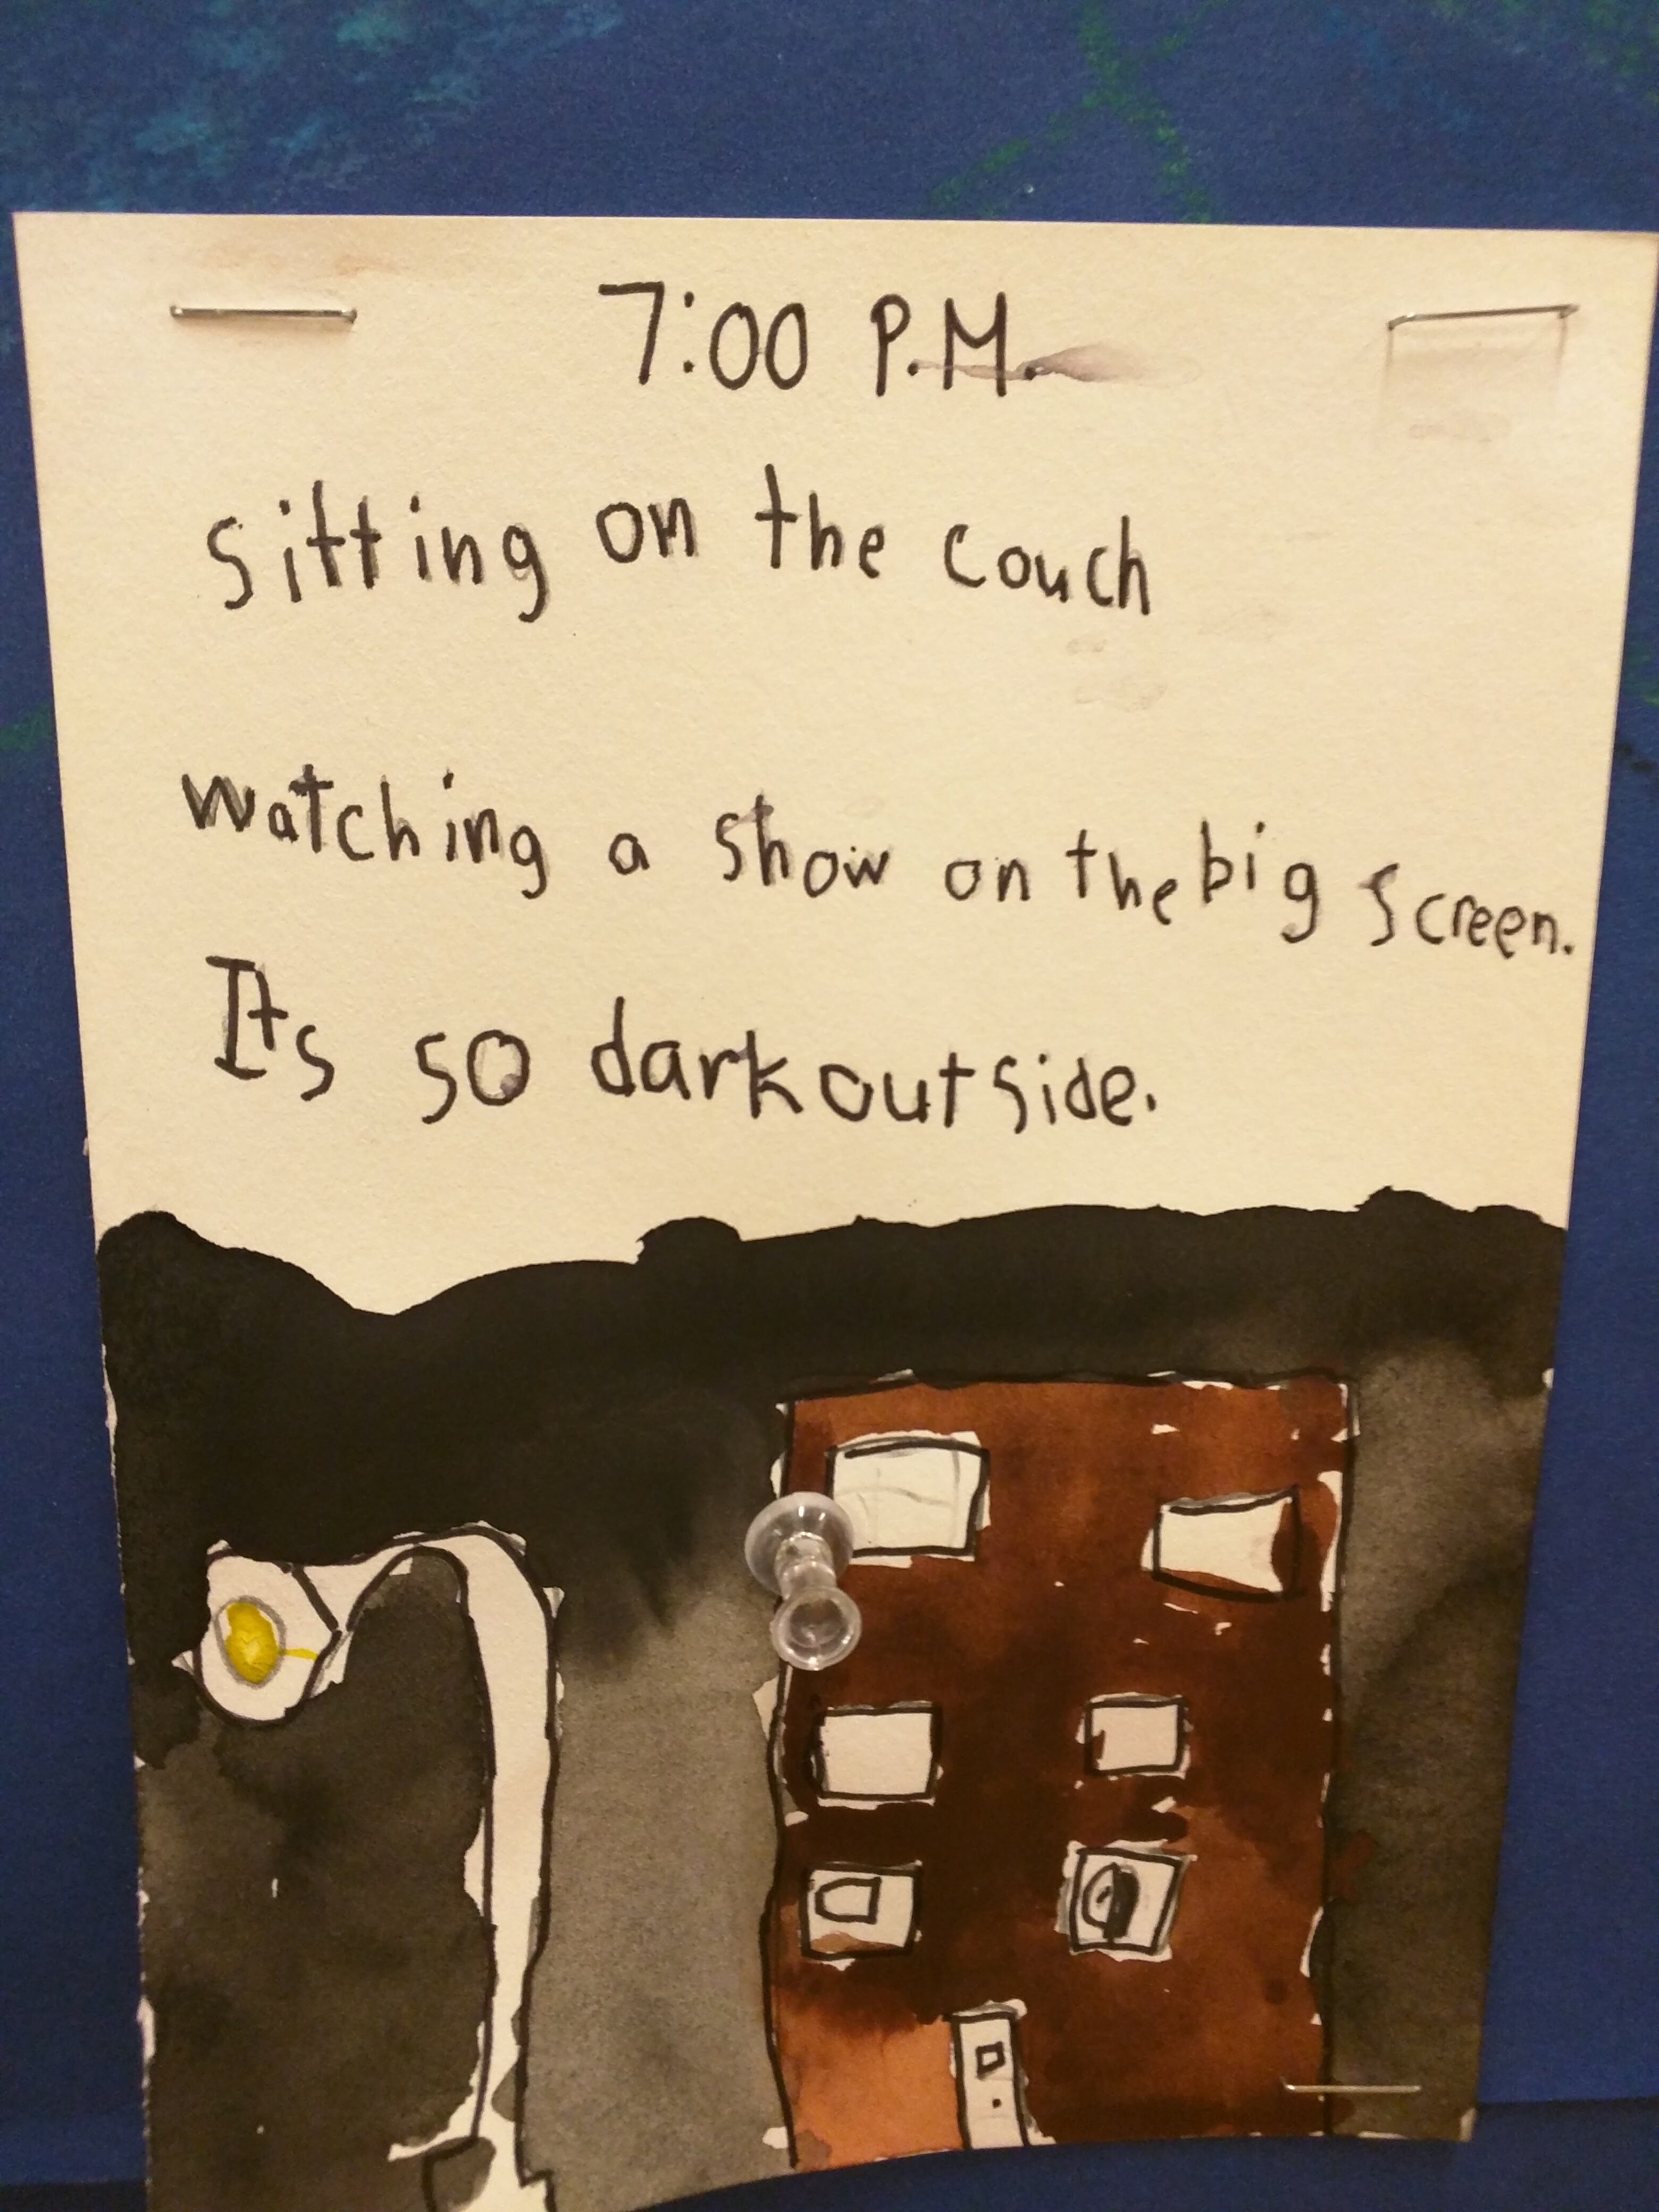 7:00 P.M.
sitting on the couch
watching a show on the big screen.
Its so dark outside.